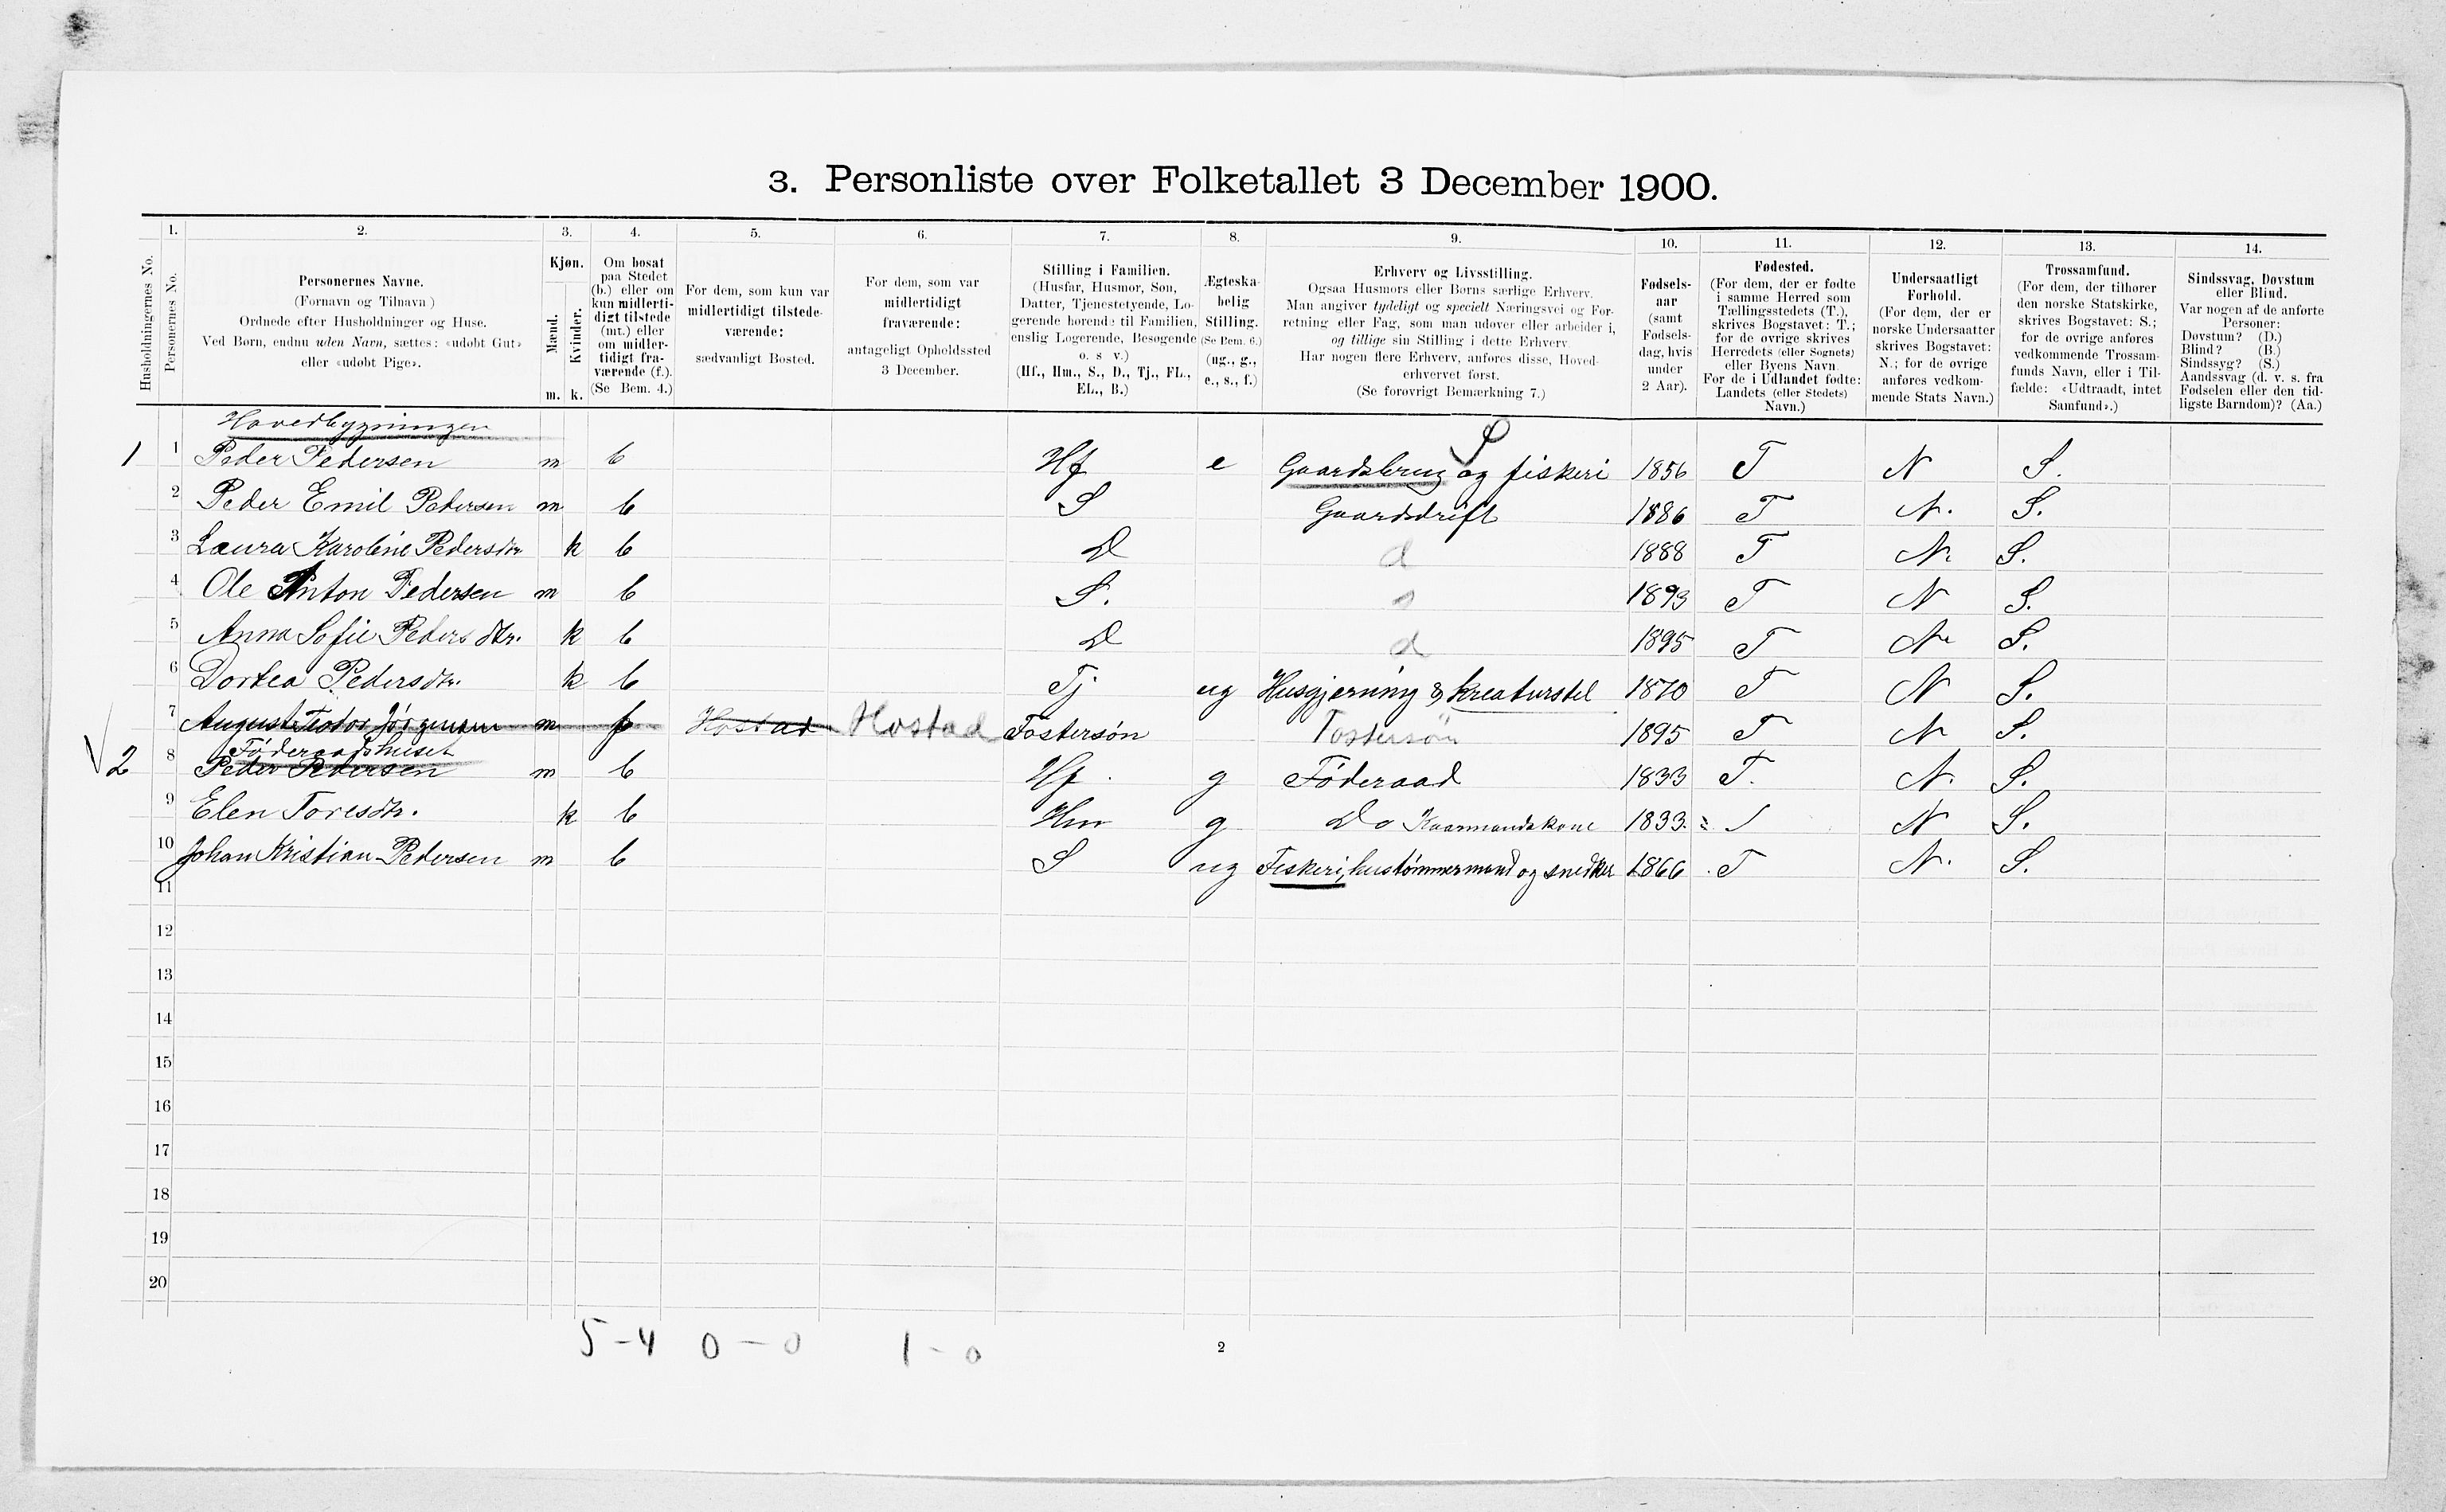 3. Personliste over Folketallet 3 December 1900.
1. 2. 3. 4. 5. 6. 7. 8. 9. 10. 11. 12. 13. 14.
Husholdningernes No.
Personernes No.
Personernes Navne.
(Fornavn og Tilnavn.)
Ordnede efter Husholdninger og Huse.
Ved Børn, endnu uden Navn, sættes: «udøbt Gut»
eller «udøbt Pige».
Kjøn.
Mænd.
Kvinder.
m. k.
Om bosat
paa Stedet
(b.) eller om
kun midlerti-
digt tilstede
(mt.) eller
om midler-
tidigt fra-
værende (f.).
(Se Bem. 4.)
For dem, som kun var
midlertidigt tilstede-
værende:
sædvanligt Bosted.
For dem, som var
midlertidigt
fraværende:
antageligt Opholdssted
3 December.
Stilling i Familien.
(Husfar, Husmor, Søn,
Datter, Tjenestetyende, Lo-
gerende hørende til Familien,
enslig Logerende, Besøgende
o. s v.)
(Hf., Hm., S., D., Tj., FL.,
EL., B.)
Ægteska-
belig
Stilling.
(Se Bem. 6.)
(ug., g.,
e., s., f.)
Erhverv og Livsstilling.
Ogsaa Husmors eller Børns særlige Erhverv.
Man angiver tydeligt og specielt Næringsvei og For-
retning eller Fag, som man udøver eller arbeider i,
og tillige sin Stilling i dette Erhverv.
Har nogen flere Erhverv, anføres disse, Hoved-
erhvervet først.
(Se forøvrigt Bemærkning 7.)
Fødsels-
aar
(samt
Fødsels-
dag, hvis
under
2 Aar).
Fødested.
(For dem, der er fødte
i samme Herred som
Tællingsstedets (T.),
skrives Bogstavet: T.;
for de øvrige skrives
Herredets (eller Sognets)
eller Byens Navn.
For de i Udlandet fødte:
Landets (eller Stedets)
Navn.)
Undersaatligt
Forhold.
(For dem, der er
norske Undersaatter
skrives Bogstavet:
N.; for de øvrige
anføres vedkom-
mende Stats Navn.)
Trossamfund.
(For dem, der tilhører
den norske Statskirke,
skrives Bogstavet: S.;
for de øvrige anføres
vedkommende Trossam-
funds Navn, eller i Til-
fælde: «Udtraadt, intet
Samfund».)
Sindssvag, Døvstum
eller Blind.
Var nogen af de anførte
Personer:
Døvstum? (D.)
Blind? (B.)
Sindssyg? (S.)
Aandssvag (d. v. s. fra
Fødselen eller den tid-
ligste Barndom)? (Aa.)
Hovedbygningen
1 1 Peder Pedersen m b Hf e Gaardsbrug og fiskeri S 1856 T N S.
2 Peder Emil Pedersen m b S Gaardsdrift 1886 T N. S.
3 Laura Karoline Pedersdtr. k b D d 1888 T N. S.
4 Ole Anton Pedersen m b S. s 1893 T N S.
5 Anna Sofie Pedersdtr. k b D d 1895 T N. S.
6 Dortea Pedersdtr. k b Tj ug Husgjerning & kreaturstel 1870 T N S.
7 August Teodor Jörgensen m f Hostad Hostad Fostersön Fostersön 1895 T N S.
Föderaadshuset
2 8 Peder Pedersen m b Hf. g Föderaad 1833 T. N. S.
9 Elen Toresdtr. k b Hm g Do Kaarmandskone 1833 T N S.
10 Johan Kristian Pedersen m b S ug Fiskeri, hustömmermand og snedker 1866 T N. S.
11
12
13
14
15
16
17
18
19
20
5-4 0-0 1-0
2